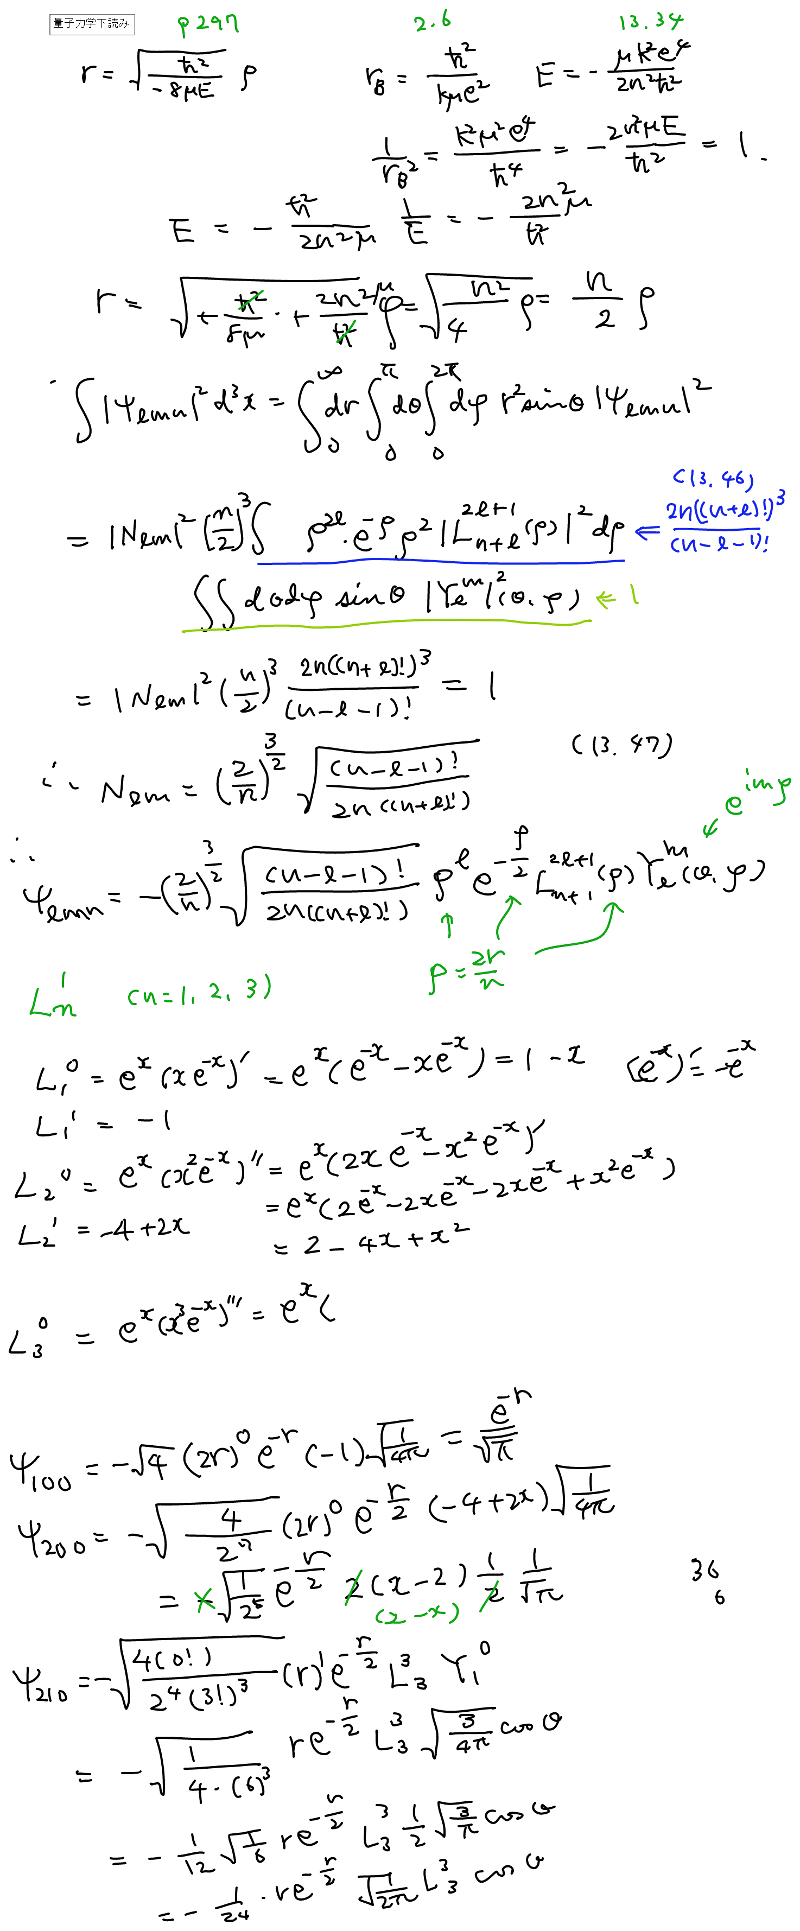 量子力学下読み
p297 2.6 13.34
r = √(ħ²/(-8μE)) ρ   r_B = ħ²/(kμe²)   E = -μk²e⁴/(2n²ħ²)
1/r_B² = k²μ²e⁴/ħ⁴ = -2n²μE/ħ² = 1.
E = -ħ²/(2n²μ)   1/E = -2n²μ/ħ²
r = √(+ħ²/(8μ)·+2n²μ/ħ²) ρ = √(n²/4) ρ = n/2 ρ
∫|Ψℓmn|²d³x = ∫₀^∞dr∫₀^πdθ∫₀^2πdφ r²sinθ|Ψℓmn|²
(13.46)
= |Nℓm|²(n/2)³∫ ρ^2ℓ·e^-ρ ρ²|L_n+ℓ^2ℓ+1(ρ)|²dρ ⇐ 2n((n+ℓ)!)³/(n-ℓ-1)!
∬dθdφ sinθ |Yℓ^m|²(θ,φ) ⇐ 1
= |Nℓm|²(n/2)³ 2n((n+ℓ)!)³/(n-ℓ-1)! = 1
∴ Nℓm = (2/n)^3/2 √((n-ℓ-1)!/(2n((n+ℓ)!)))   (13.47)
e^imφ
∴ Ψℓmn = -(2/n)^3/2 √((n-ℓ-1)!/(2n((n+ℓ)!))) ρ^ℓ e^-ρ/2 L_n+1^2ℓ+1(ρ) Yℓ^m(θ,φ)
ρ = 2r/n
L_n^1 (n=1, 2, 3)
L₁⁰ = e^x(xe^-x)′ = e^x(e^-x - xe^-x) = 1 - x   (e^-x)′ = -e^-x
L₁¹ = -1
L₂⁰ = e^x(x²e^-x)″ = e^x(2xe^-x - x²e^-x)′
= e^x(2e^-x - 2xe^-x - 2xe^-x + x²e^-x)
L₂¹ = -4 + 2x
= 2 - 4x + x²
L₃⁰ = e^x(x³e^-x)‴ = e^x(
Ψ₁₀₀ = -√4 (2r)⁰ e^-r (-1) √(1/4π) = e^-r/√π
Ψ₂₀₀ = -√(4/2⁷) (2r)⁰ e^-r/2 (-4+2x) √(1/4π)
= -√(1/2⁵) e^-r/2 2(x-2) 1/2 1/√π   36
(2-x)   6
Ψ₂₁₀ = -√(4(0!)/(2⁴(3!)³)) (r)¹ e^-r/2 L₃³ Y₁⁰
= -√(1/(4·(6)³)) re^-r/2 L₃³ √(3/4π) cosθ
= -1/12 √(1/6) re^-r/2 L₃³ 1/2 √(3/π) cosθ
= -1/24 · re^-r/2 √(1/2π) L₃³ cosθ